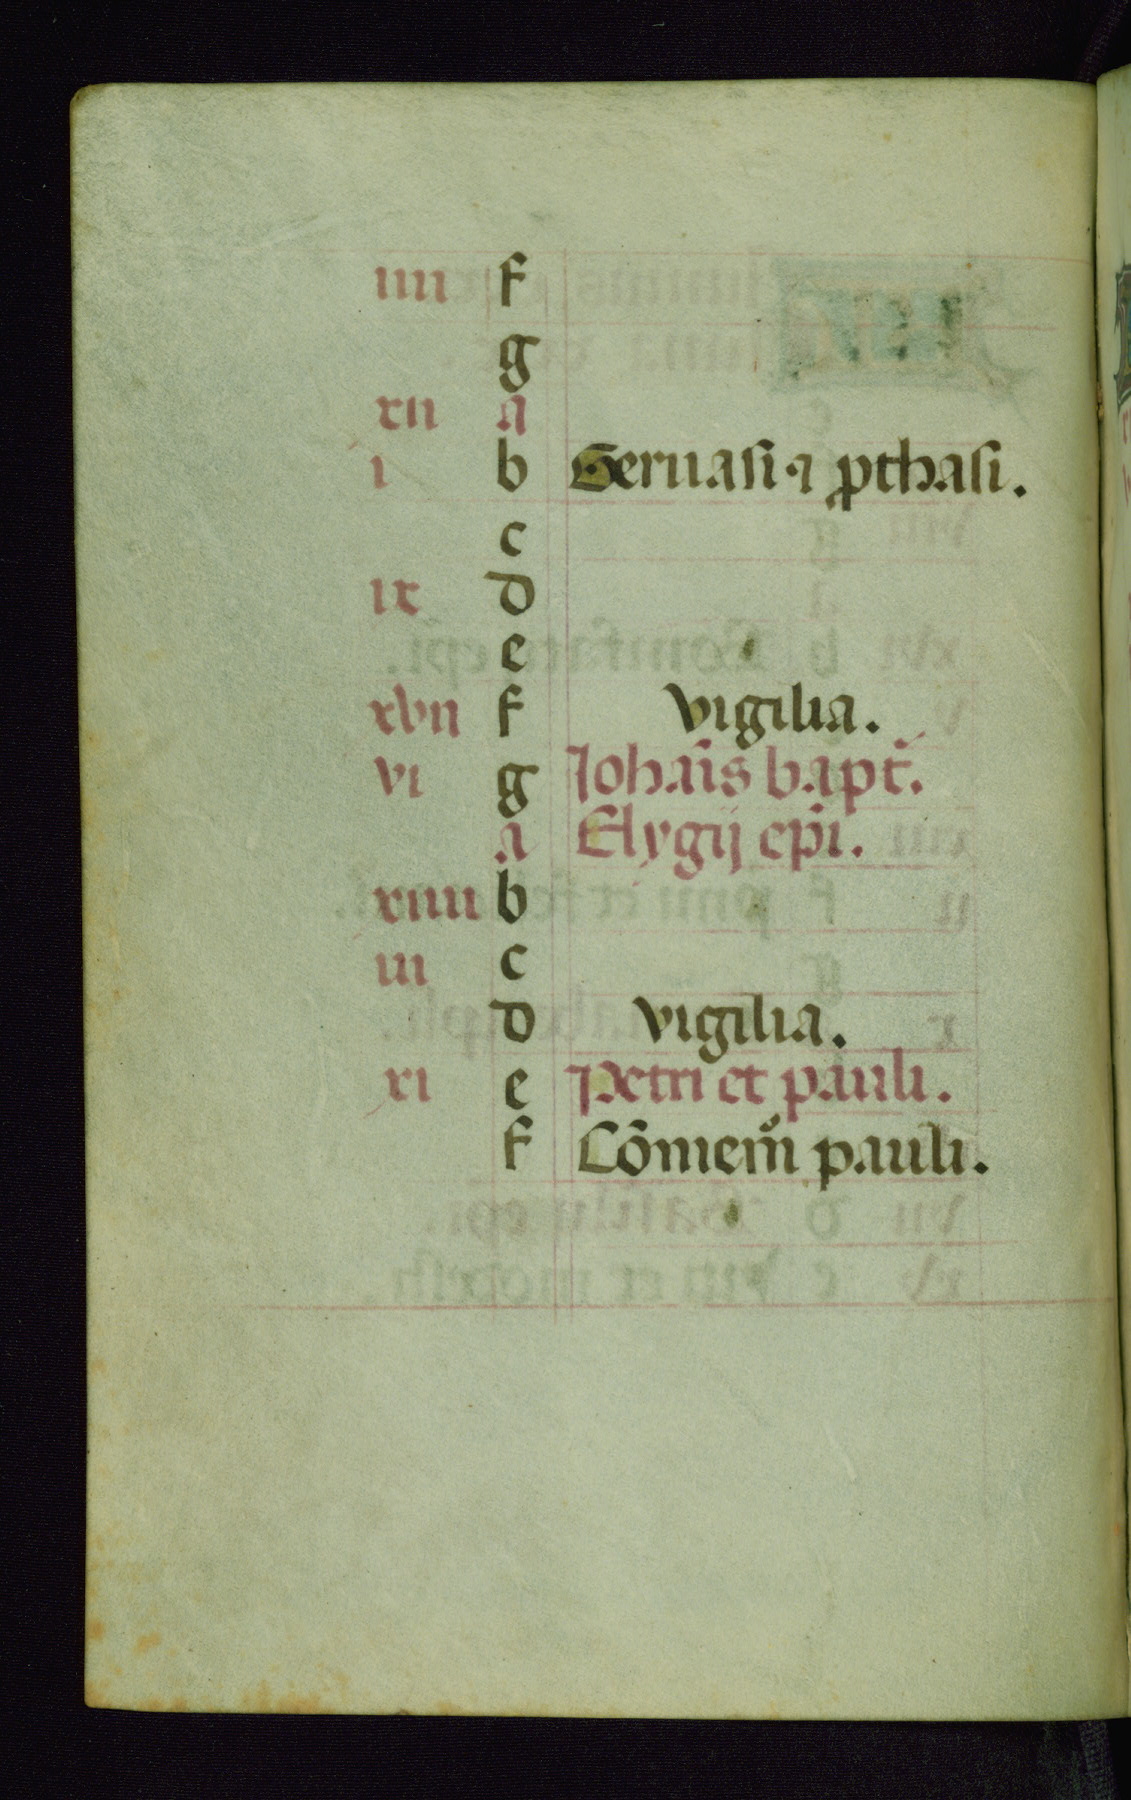 iiii f
g
xii a
i b Geruasi · ⁊ ꝓthasi.
c
ix d
e
xvii f vigilia.
vi g Joha̅is bapt̅.
a Elygij ep̅i.
xiiii b
iii c
d vigilia.
xi e Petri et pauli.
f Co̅mem̅ pauli.